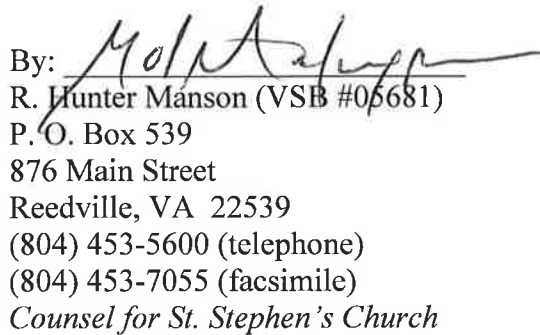 By:
R. Hunter Manson (VSB #05681)
P. O. Box 539
876 Main Street
Reedville, VA 22539
(804) 453-5600 (telephone)
(804) 453-7055 (facsimile)
Counsel for St. Stephen's Church